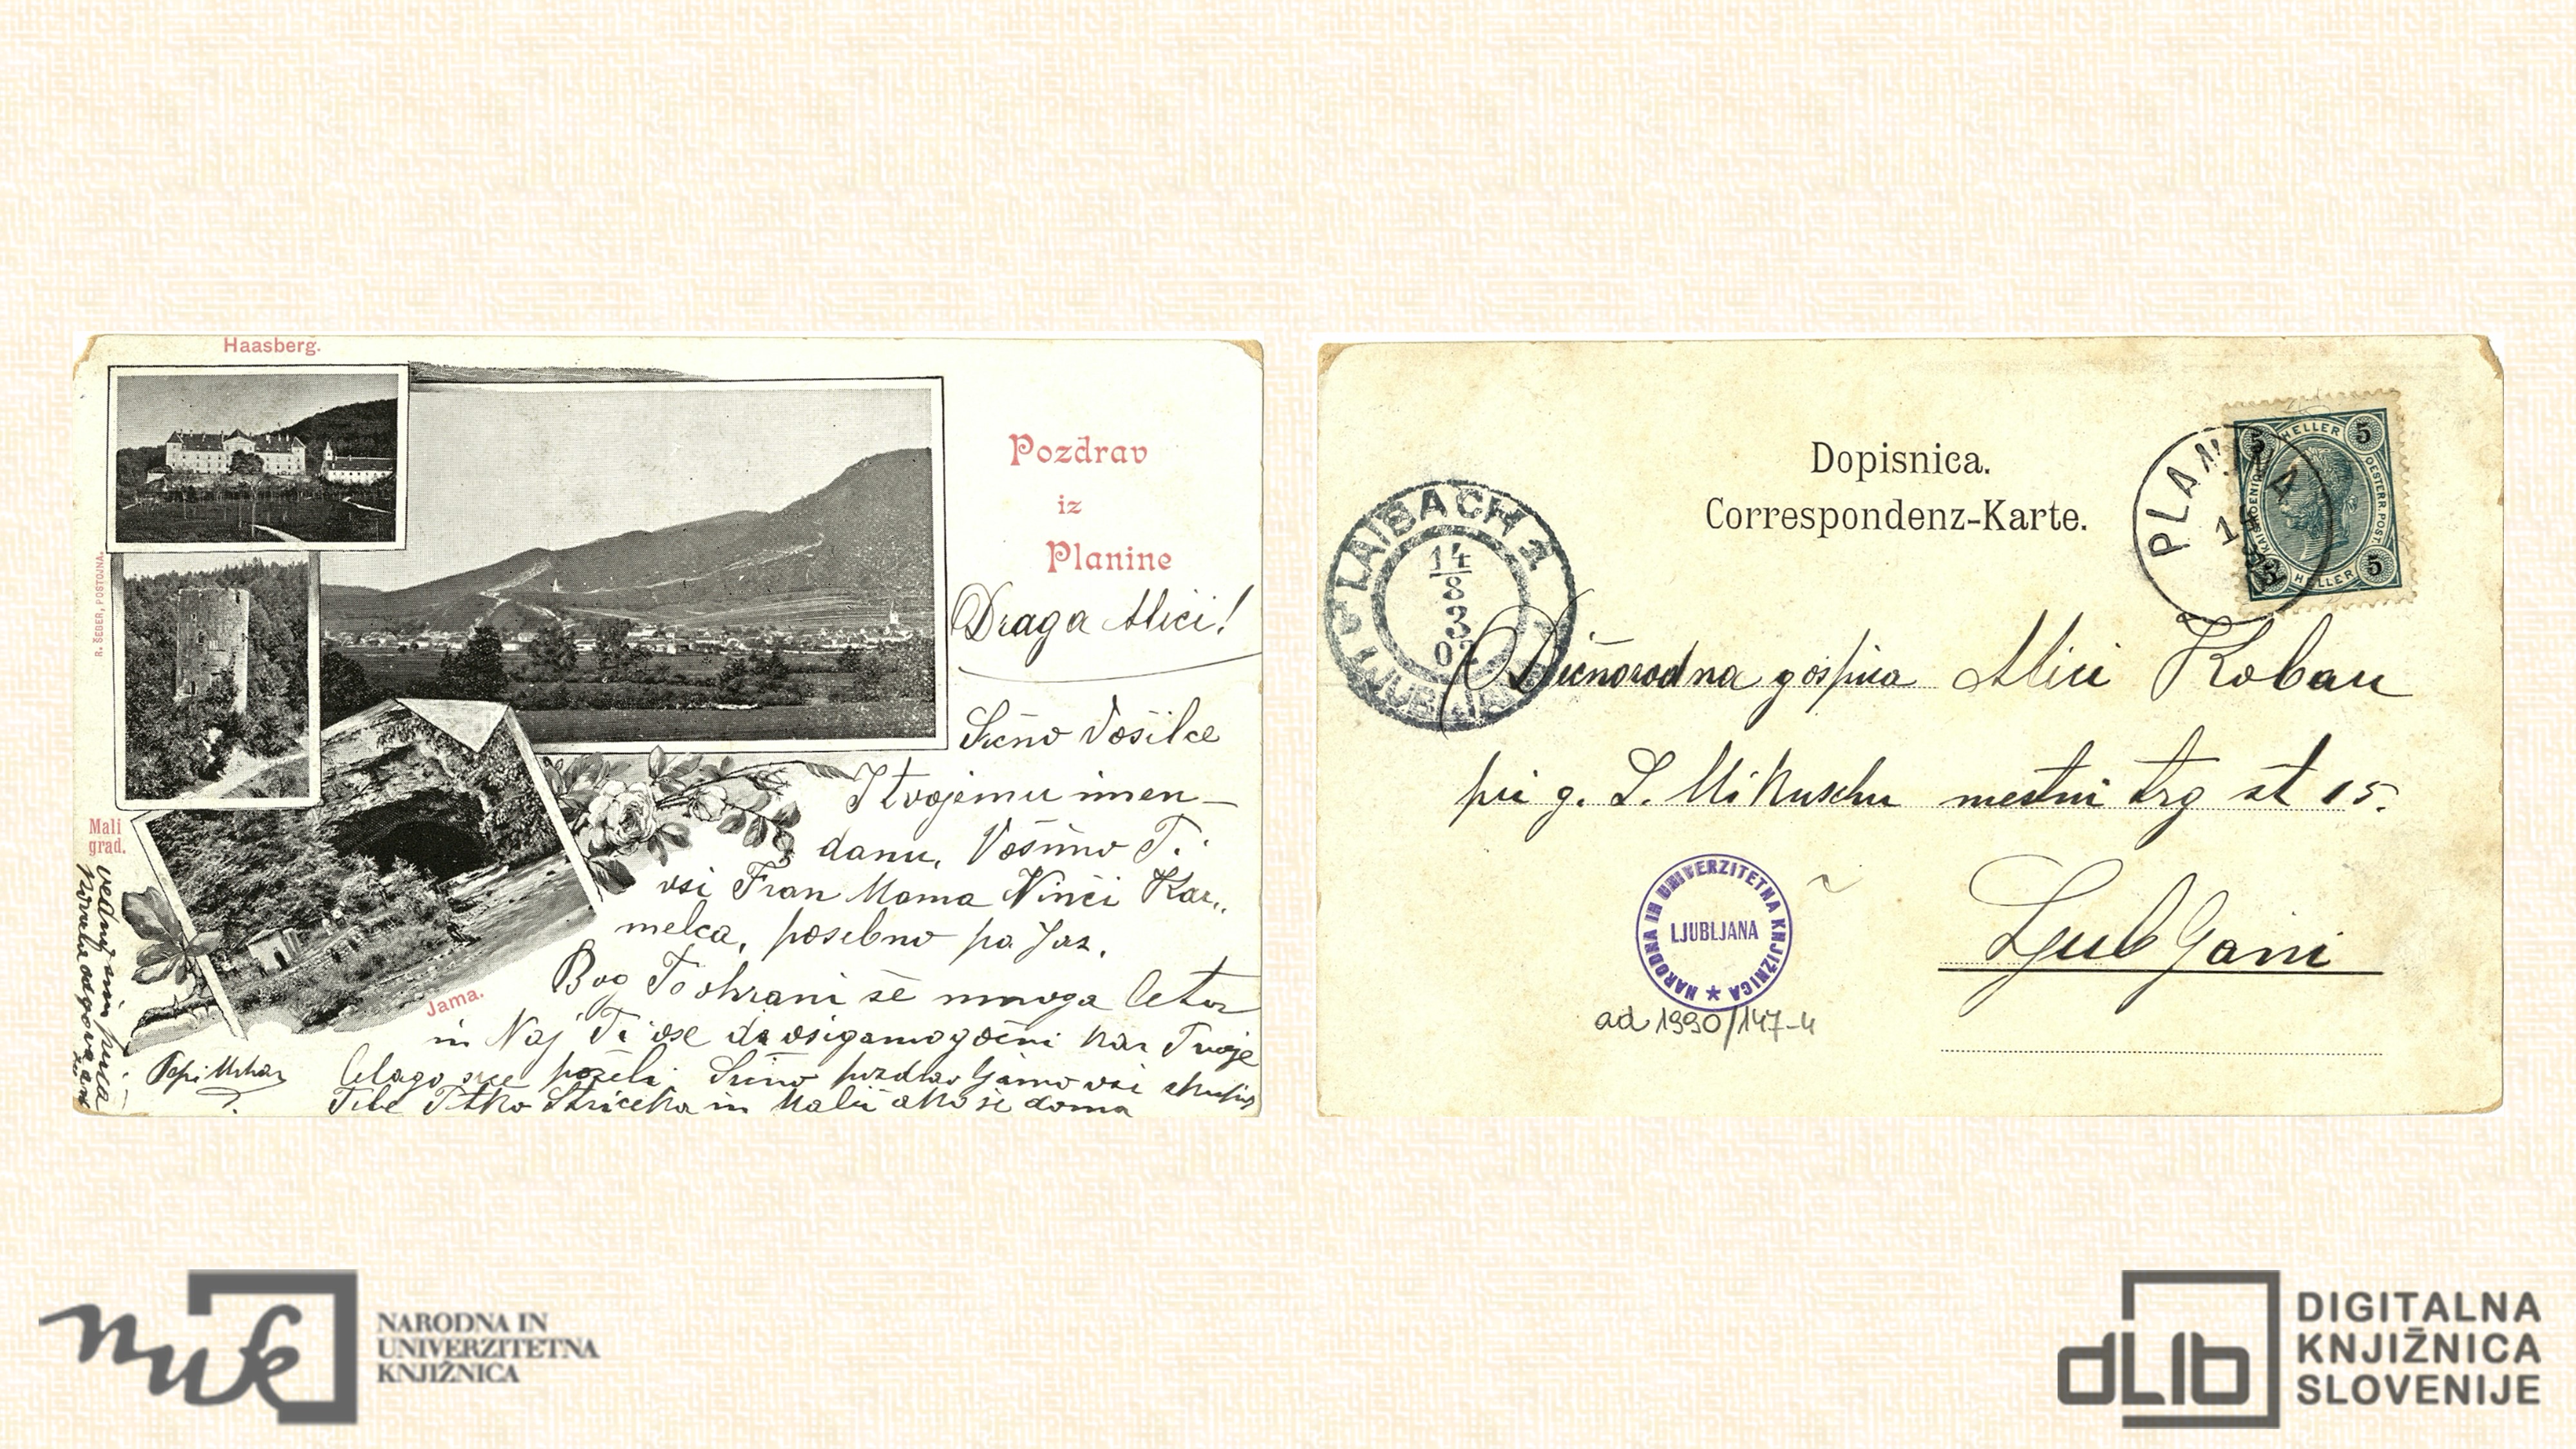 Haasberg.
Pozdrav
iz
Planine
R. ŠEBER, POSTOJNA.
Mali
grad.
Jama.
Draga Alici!
Srčno Vošilce
K tvojemu imen-
danu, Vošimo Ti
vsi Fran Mama Ninči Kar-
melca, posebno pa Jaz.
Bog Te ohrani še mnoga let
in Naj Ti vse da vsigamogočni kar Tvoje
blago srce poželi. Srčno pozdravljamo vsi skupaj
Tebe Strička in ako si doma
Pepi
Dopisnica.
Correspondenz-Karte.
LAIBACH 1
14
8
3
02
LJUBLJANA
PLANINA
5 HELLER 5
KAISERL. KOENIGL.
OESTERR. POST.
5 HELLER 5
gospica Alici Kobau
pri g. L. Mikuschu mestni trg št 15.
Ljubljani
NARODNA IN UNIVERZITETNA KNJIŽNICA
LJUBLJANA
ad 1990/147-4
nuk
NARODNA IN
UNIVERZITETNA
KNJIŽNICA
dLib
DIGITALNA
KNJIŽNICA
SLOVENIJE